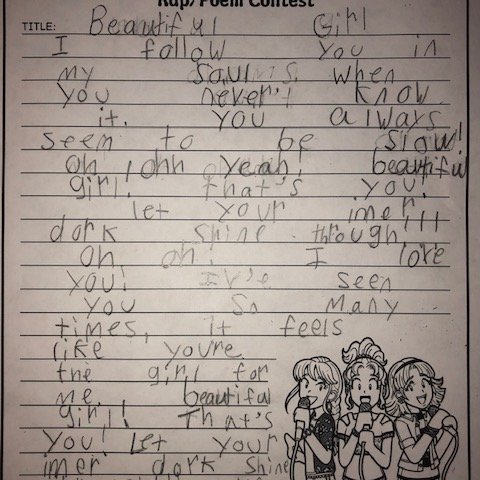 Rap/Poem Contest
TITLE: Beautiful Girl
I follow you in
my soul when
you never know
it. you always
seem to be slow!
oh ohh yeah, beautiful
girl. that's you!
let your imer
dork shine through!!!
oh oh! I love
you! Iv'e seen
you so many
times, it feels
like youre
the girl for
me. beautiful
girl! That's
you! Let your
imer dork shine